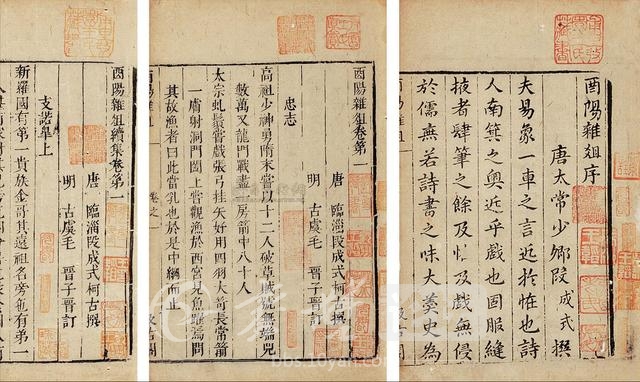 酉陽雜俎序
唐太常少卿段成式撰
夫易象一車之言近於怪也詩
人南箕之奧近乎戲也固服縫
掖者肆筆之餘及怪及戲無侵
於儒無若詩書之味大羹史為
酉陽雜俎卷第一
唐 臨淄段成式柯古撰
明 古虞毛 晉子晉訂
忠志
高祖少神勇隋末嘗以十二人破草賊號無端兒
數萬又龍門戰盡一房箭中八十人
太宗虬鬚嘗戲張弓挂矢好用四羽大笴長常箭
一膚射洞門闔上嘗觀漁於西宮見魚躍焉問
其故漁者曰此當乳也於是中網而止
酉陽雜俎續集卷第一
唐 臨淄段成式柯古撰
明 古虞毛 晉子晉訂
支諾皋上
新羅國有第一貴族金哥其遠祖名旁㐌有弟一